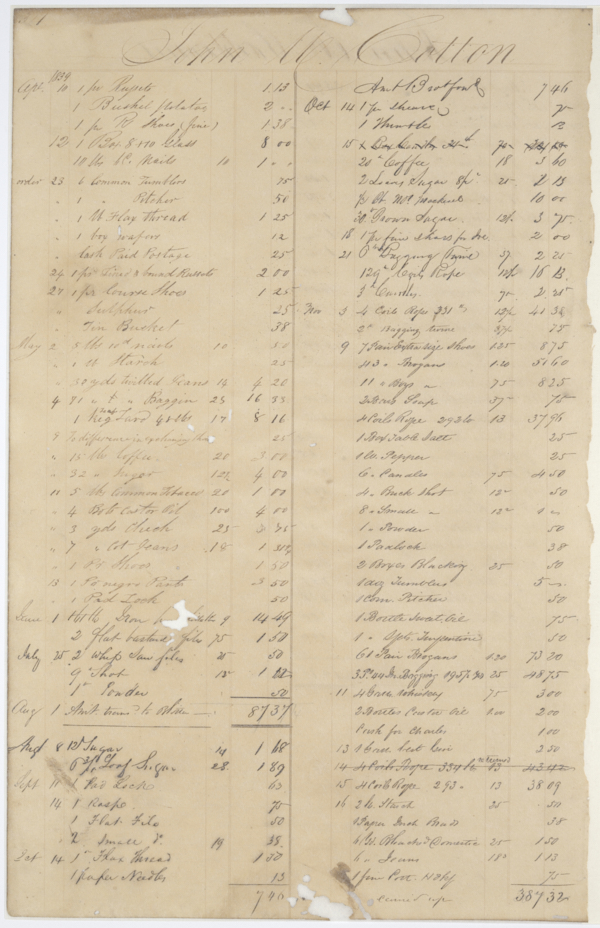 John W. Cotton
1839
Apr. 10 1 pr Rivets 1 13
1 Bushel potatoes 2 "
1 pr Shoes (fine) 1 38
12 1 Box 8x10 Glass 8 00
10 lbs Nails 10 1 " "
order 23 6 Common Tumblers 75
" 1 " Pitcher 50
" 1 lb Flax thread 1 25
" 1 box wafers 12
" Cash Paid Postage 25
24 1 pr 2 00
27 1 pr Course Shoes 1 25
" Sulphur 25
" Tin Bucket 38
May 2 5 lbs nails 10 50
" 1 lb Starch 25
" 30 yds twilled Jeans 14 4 20
4 81 " " Baggin 23 16 33
1 Keg Lard 48 lbs 17 8 16
8 To difference in exchanging 25
" 15 lbs Coffee 20 3 00
" 32 " Sugar 12½ 4 00
11 5 lbs Common Tobacco 20 1 00
" 4 Bots Castor Oil 100 4 00
" 3 yds Check 25 75
" 7 " Cot Jeans 18 1 31
" 1 Pr Shoes 1 50
13 1 Po negro Pants 3 50
" 1 Pad Lock 50
June 1 Iron 9 14 49
2 Flat bastard files 75 1 50
July 25 2 Whip Saw files 25 50
9 " Shot 1
1 " Powder 50
Aug 1 Amt 87 37
Aug 8 12 " Sugar 14 1 68
6 Loaf Sugar 28 1 89
Sept 10 1 Pad Lock 63
14 1 Rasp 75
1 Flat File 50
2 Small do. 19 38
Oct 14 1 " Flax Thread 1 50
1 paper Needles 13
7 46
Amt Brot forwd 7 46
Oct 14 1 pr shears 75
1 Thimble 13
15
20 " Coffee 18 3 60
2 Loaves Sugar 25 2 13
Mackerel 10 00
30 " Brown Sugar 12½ 3 75
18 1 pr fine shoes for 2 00
21 6 " Bagging Twine 37 2 25
129 " Rope 12½ 16 13
3 " 75 2 25
Nov 3 4 Coils Rope 331 " 12½ 41 38
2 " Bagging twine 37½ 75
9 7 Pair Extra size Shoes 1.25 8 75
43 " Brogans 1.20 51 60
11 " Boys " 75 8 25
2 Bars Soap 37 75
4 Coils Rope 292 lb 13 37 96
1 Box Table Salt 25
1 lb. Pepper 25
6 " Candles 75 4 50
4 " Buck Shot 12 " 50
8 " Small " 12 " 1 "
1 " Powder 50
1 Padlock 38
2 Boxes Blacking 25 50
1 doz Tumblers 5 "
1 Com. Pitcher 50
1 Bottle Sweet Oil 75
1 " Spts. Turpentine 50
61 Pair Brogans 1.20 73 20
3 Ps Bagging 195 yds 25 48 75
11 4 Whiskey 75 3 00
2 Bottles Castor Oil 1.00 2 00
Cash for Charles 1 00
13 1 2 50
14 4 Coils Rope 334 lbs returned 13 43 42
15 4 Coils Rope 293 " 13 38 09
16 2 lb Starch 25 50
1 Paper Inch Brads 38
6 Yds Bleached Domestic 25 1 50
6 " Jeans 18¾ 1 13
1 fine Pock. Hdkf 75
carried up 387 32